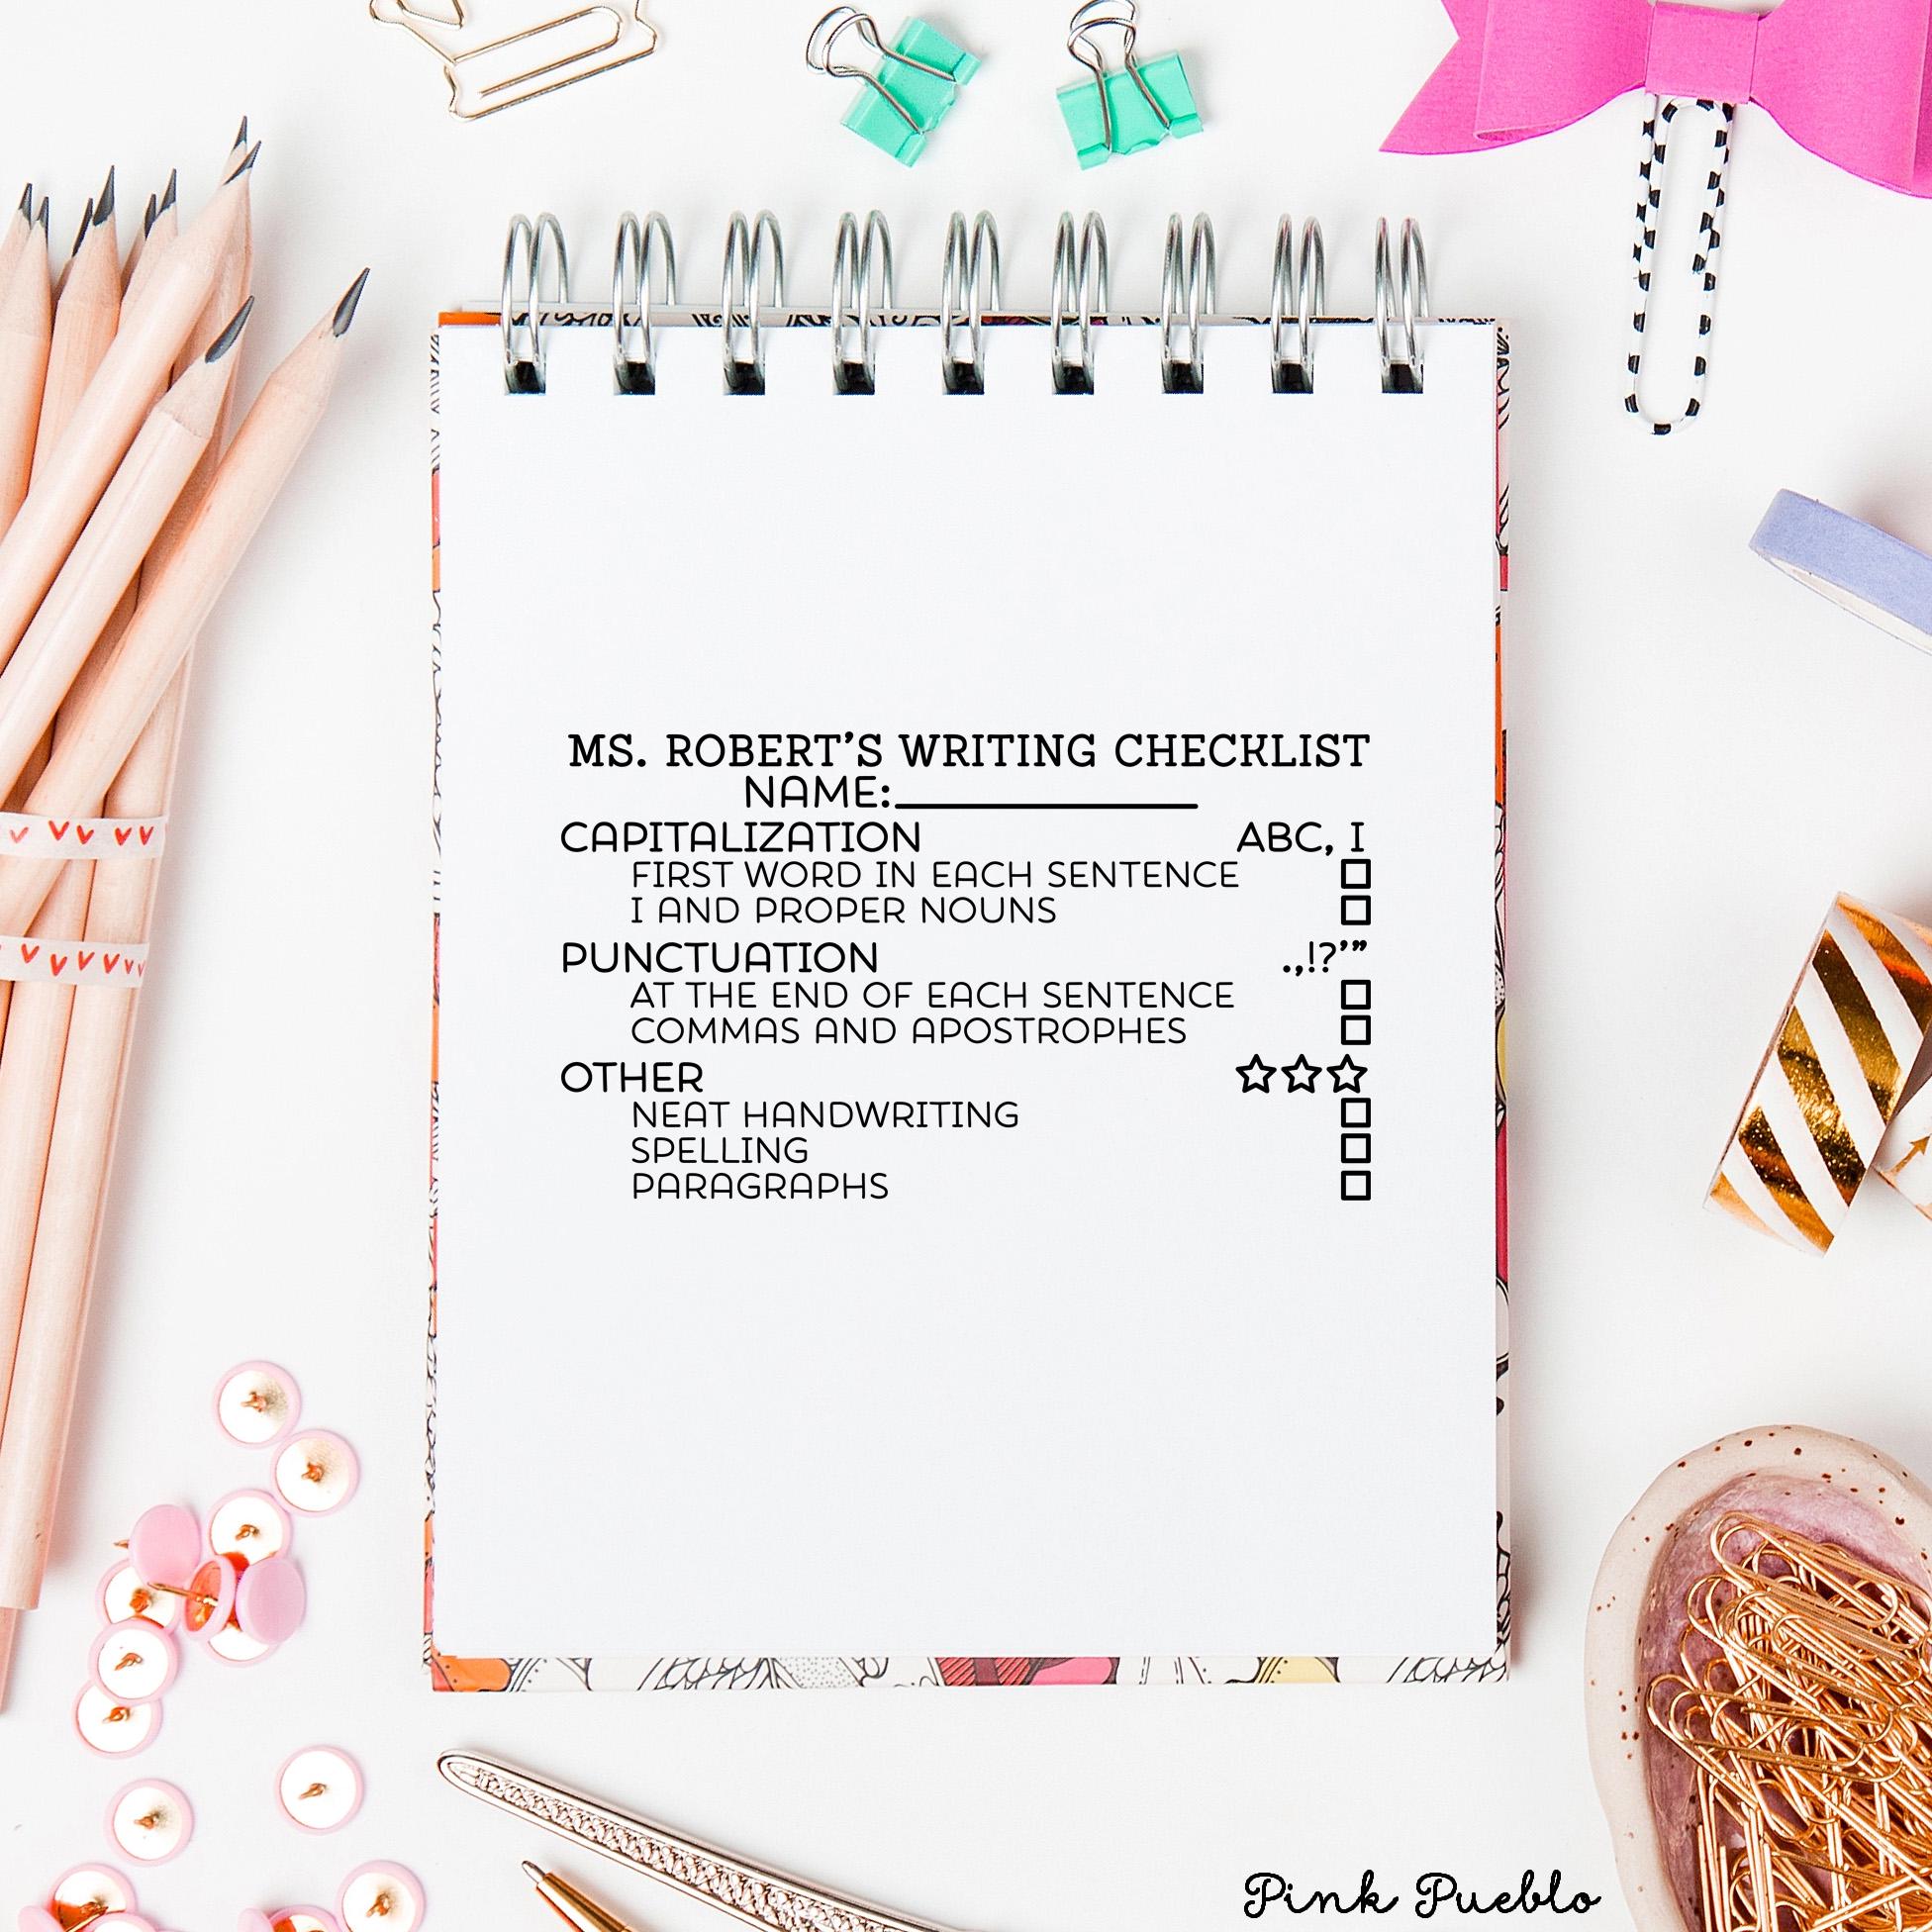 MS. ROBERT'S WRITING CHECKLIST
NAME:______________
CAPITALIZATION ABC, I
FIRST WORD IN EACH SENTENCE □
I AND PROPER NOUNS □
PUNCTUATION .,!?'”
AT THE END OF EACH SENTENCE □
COMMAS AND APOSTROPHES □
OTHER ☆☆☆
NEAT HANDWRITING □
SPELLING □
PARAGRAPHS □
Pink Pueblo